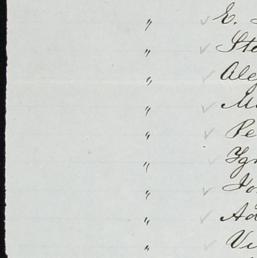 " E.
" Ste
" Ale
" M
" Pe
" Ign
" Jo
" Ad
" Vi